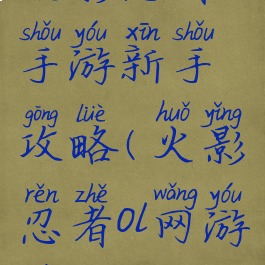 shǒu yóu xīn shǒu
手游新手
gōng lüè huǒ yǐng
攻略(火影
rěn zhě wǎng yóu
忍者ol网游